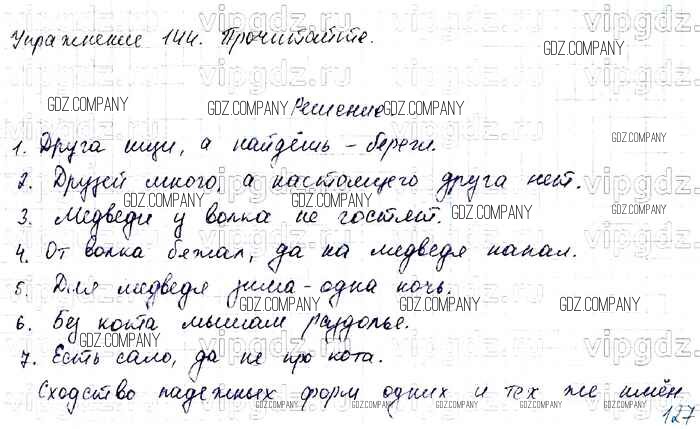 Упражнение 144. Прочитайте.
Решение
1. Друга ищи, а найдёшь – береги.
2. Друзей много, а настоящего друга нет.
3. Медведи у волка не гостят.
4. От волка бежал, да на медведя напал.
5. Для медведя зима – одна ночь.
6. Без кота мышам раздолье.
7. Есть сало, да не про кота.
Сходство падежных форм одних и тех же имён
127